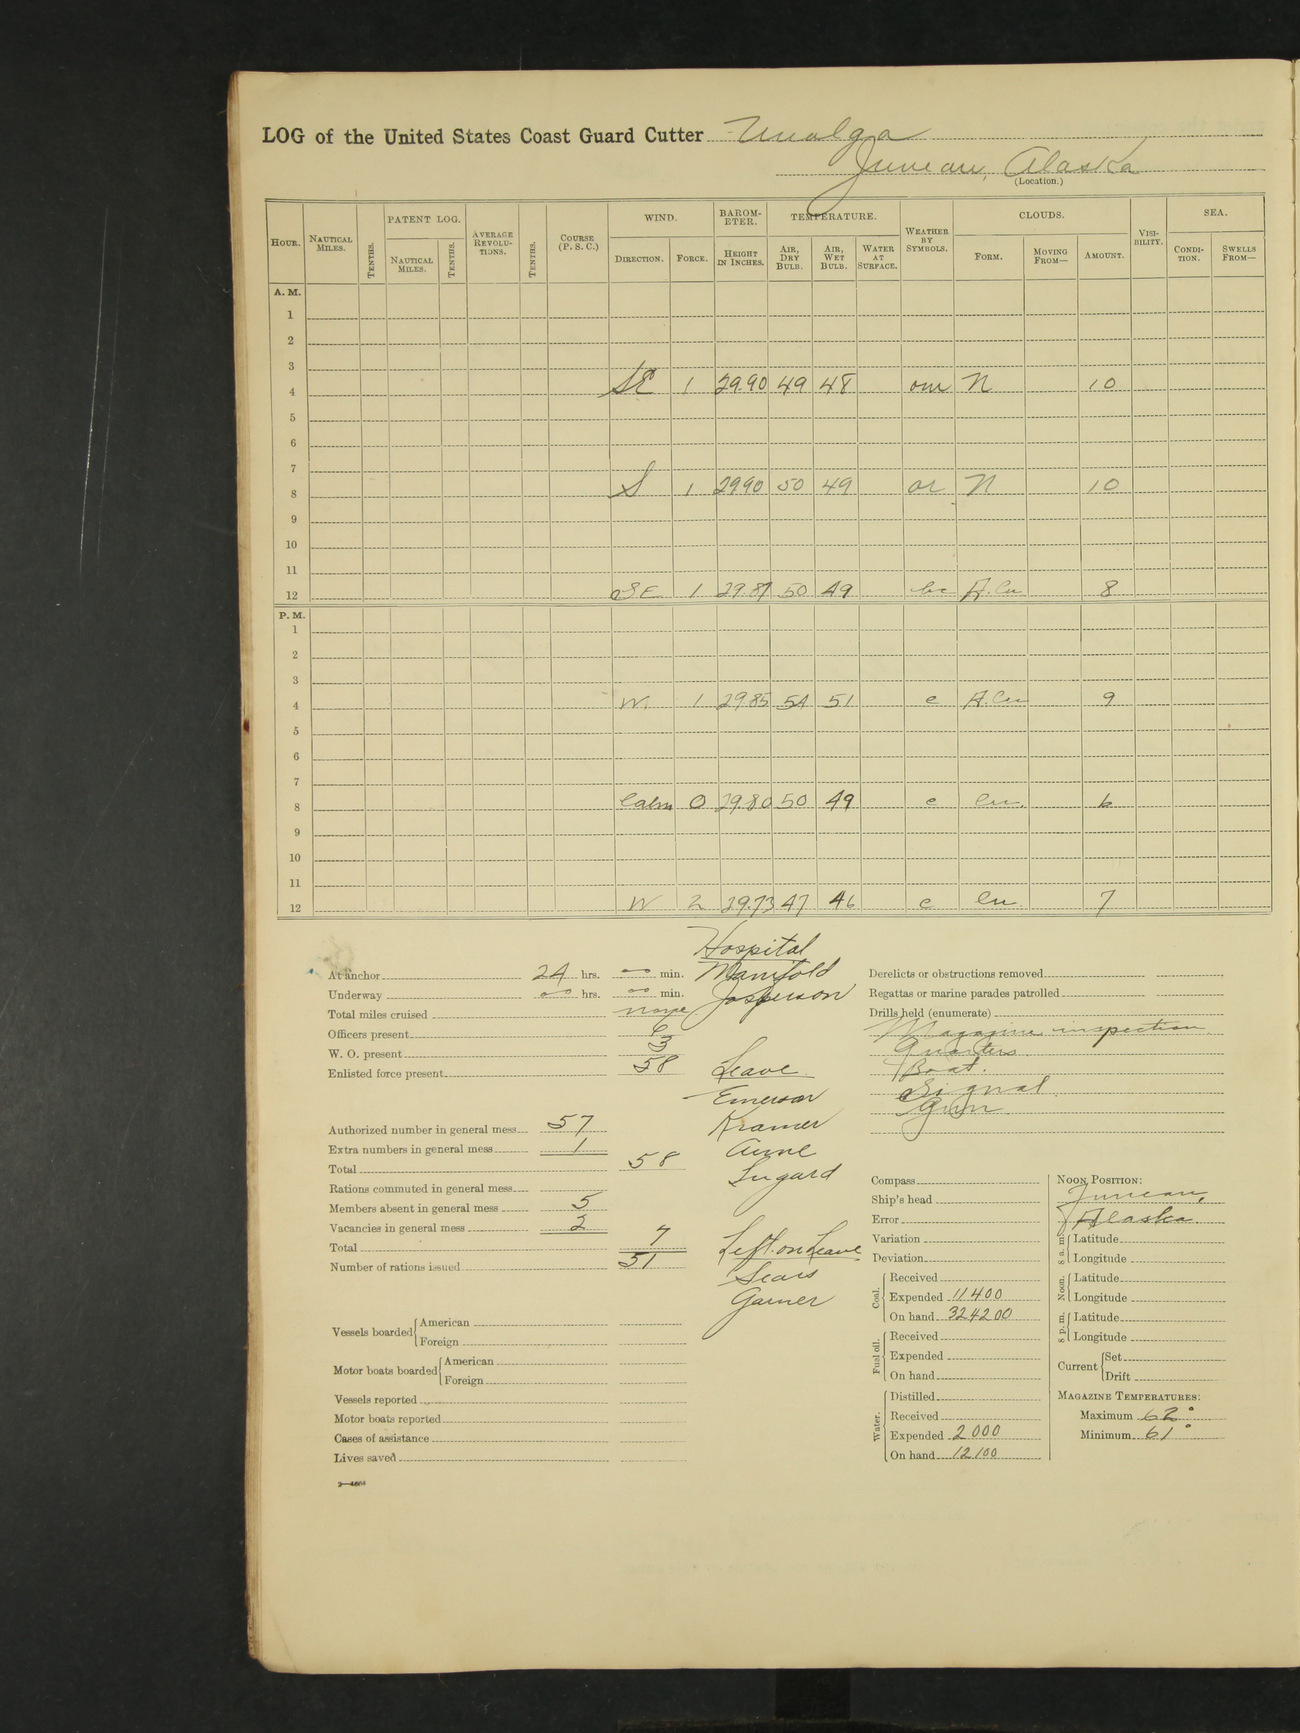 LOG of the United States Coast Guard Cutter Unalga
Juneau, Alaska
(Location.)
HOUR. NAUTICAL MILES. TENTHS. PATENT LOG. NAUTICAL MILES. TENTHS. AVERAGE REVOLUTIONS. TENTHS. COURSE (P. S. C.) WIND. DIRECTION. FORCE. BAROMETER. HEIGHT IN INCHES. TEMPERATURE. AIR, DRY BULB. AIR, WET BULB. WATER AT SURFACE. WEATHER BY SYMBOLS. CLOUDS. FORM. MOVING FROM— AMOUNT. VISIBILITY. SEA. CONDITION. SWELLS FROM—
A. M.
1
2
3
4 SE 1 29.90 49 48 om N 10
5
6
7
8 S 1 2990 50 49 or N 10
9
10
11
12 SE 1 29.87 50 49 bc A.Cu 8
P. M.
1
2
3
4 W 1 29.85 54 51 c A.Cu 9
5
6
7
8 Calm 0 29.80 50 49 c Cu. 6
9
10
11
12 W 2 29.73 47 46 c Cu 7
At anchor 24 hrs. 00 min.
Underway 00 hrs. 00 min.
Total miles cruised none
Officers present 6
W. O. present 3
Enlisted force present 58
Authorized number in general mess 57
Extra numbers in general mess 1
Total 58
Rations commuted in general mess
Members absent in general mess 5
Vacancies in general mess 2
Total 7
Number of rations issued 51
Vessels boarded American
Foreign
Motor boats boarded American
Foreign
Vessels reported
Motor boats reported
Cases of assistance
Lives saved
Hospital
Manifold
Josperson
Leave
Emerson
Kramer
Anne
Lugard
Left on Leave
Sears
Garner
Derelicts or obstructions removed
Regattas or marine parades patrolled
Drills held (enumerate)
Magazine inspection
Quarters
Boat.
Signal
Gun
Compass
Ship's head
Error
Variation
Deviation
Coal. Received
Expended 11400
On hand 324200
Fuel oil. Received
Expended
On hand
Water. Distilled
Received
Expended 2000
On hand 12100
NOON POSITION:
Juneau,
Alaska.
8 a. m. Latitude
Longitude
Noon. Latitude
Longitude
8 p. m. Latitude
Longitude
Current Set
Drift
MAGAZINE TEMPERATURES:
Maximum 62°
Minimum 61°